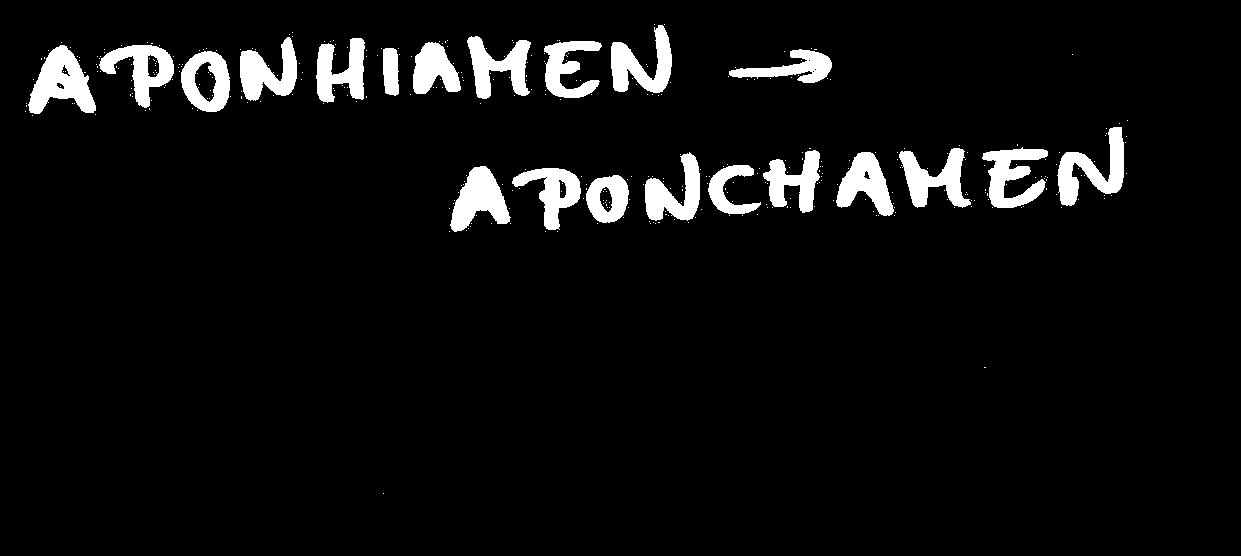 APONHIAMEN →
APONCHAMEN